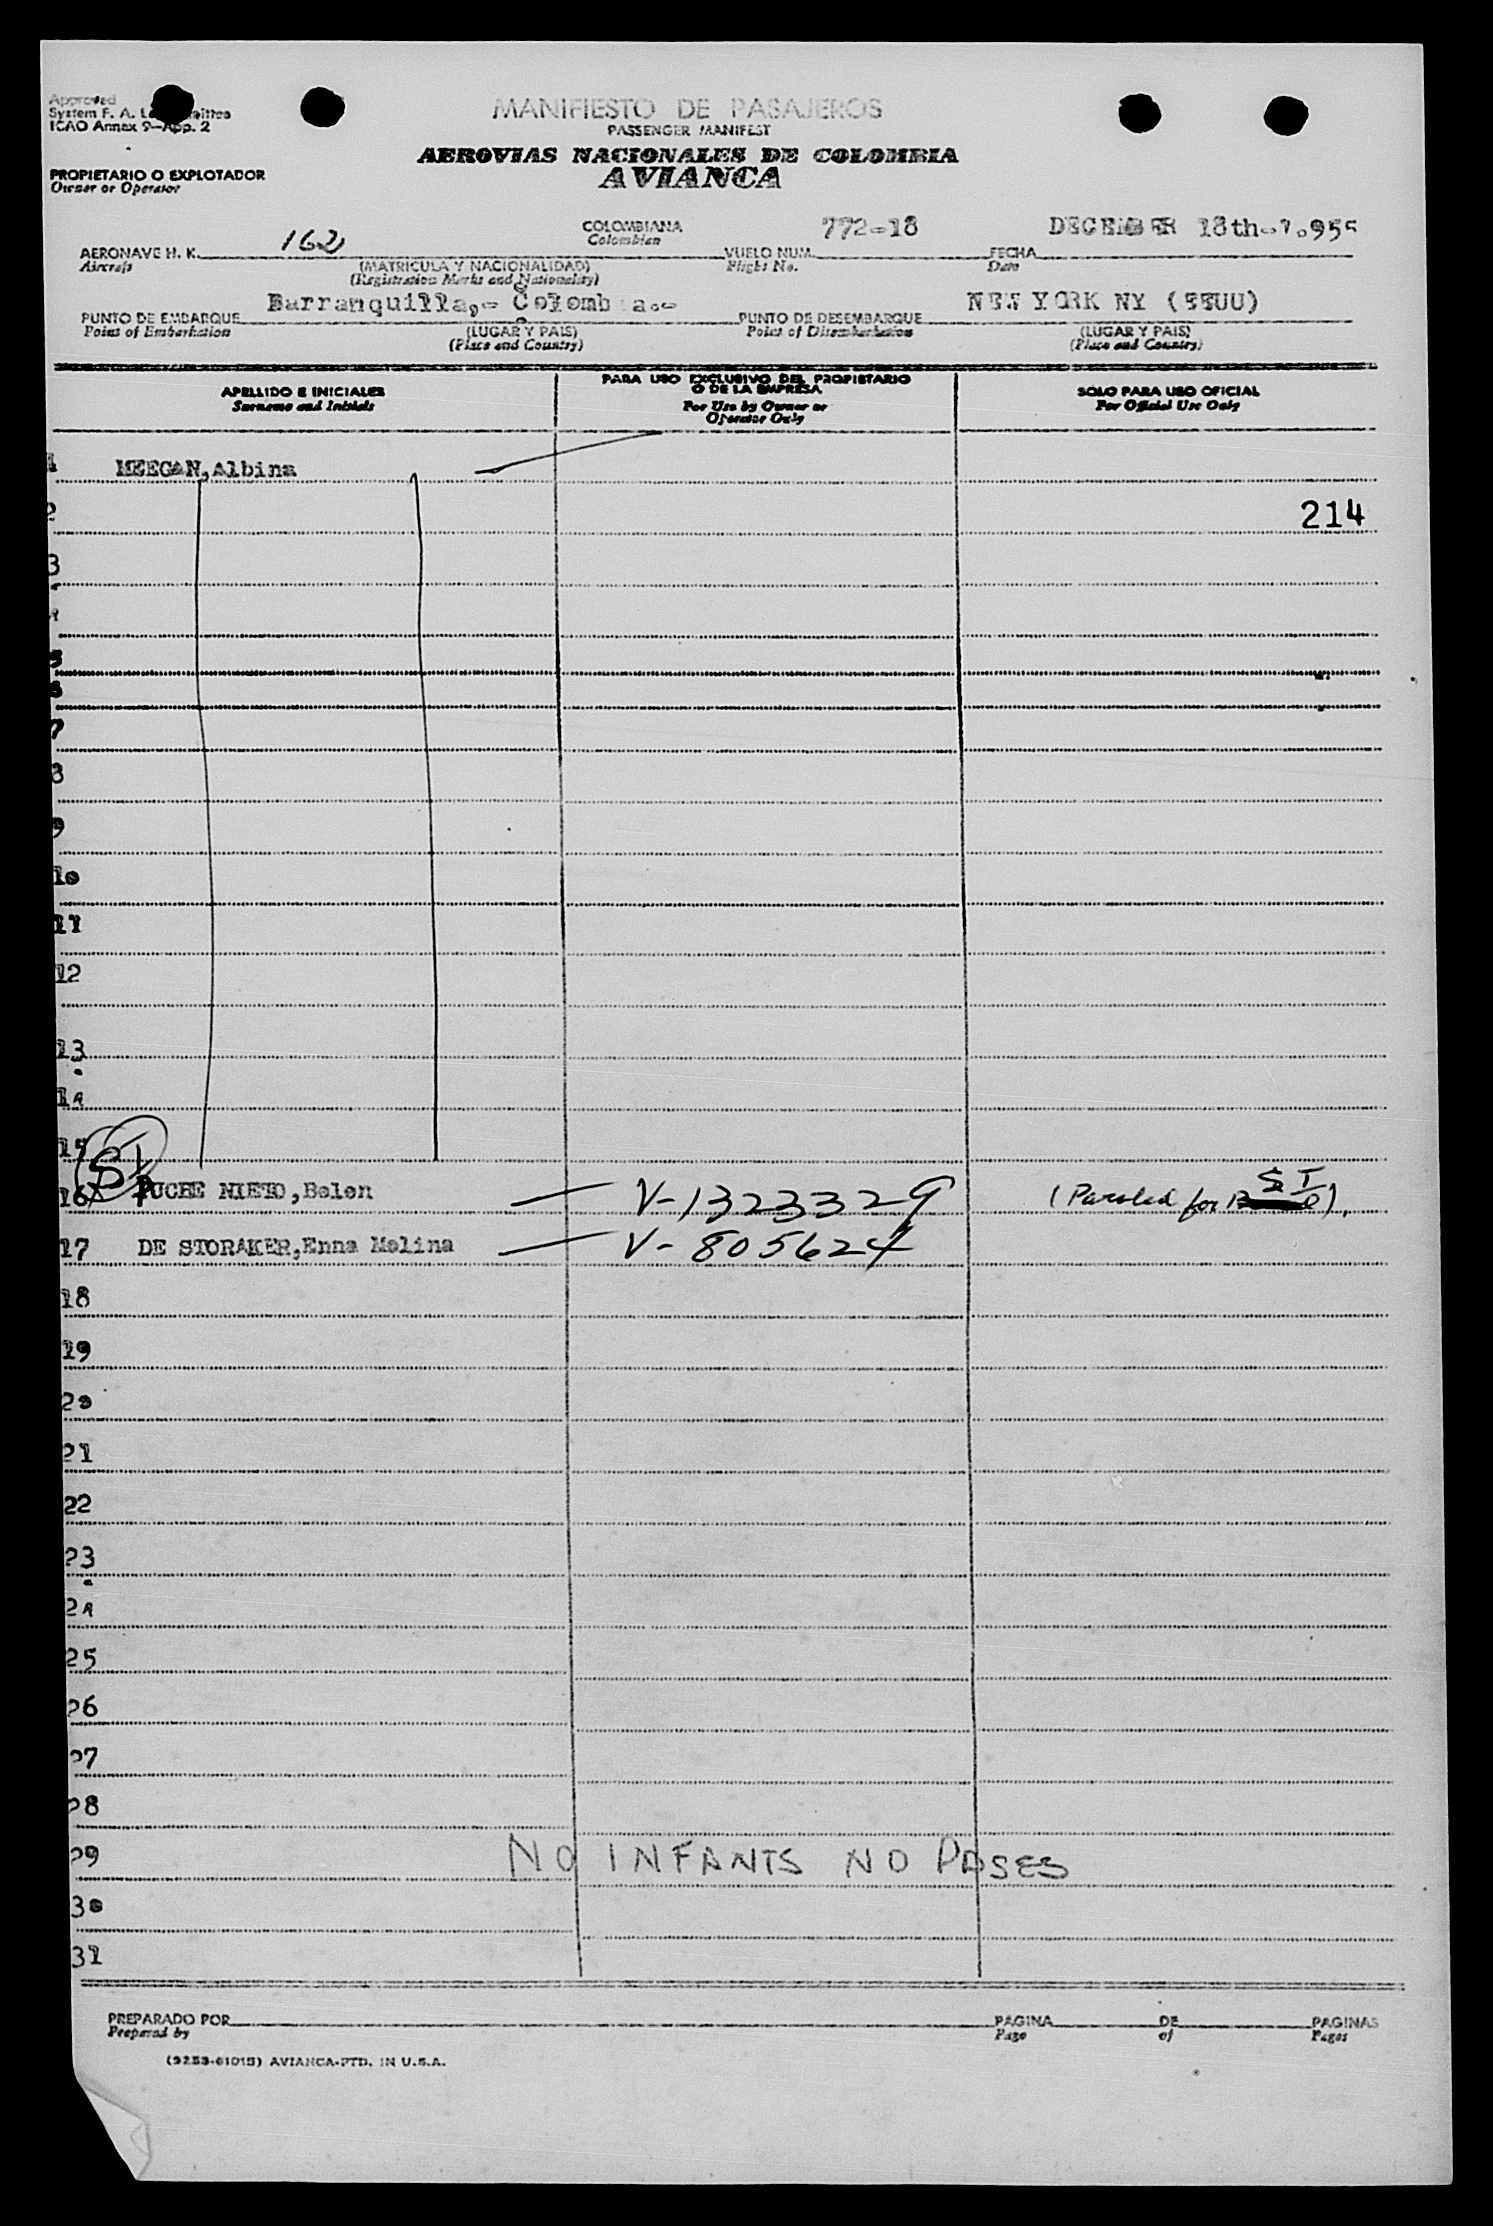 Approved
System F. A. L.
ICAO Annex 9—App. 2
MANIFIESTO DE PASAJEROS
PASSENGER MANIFEST
AEROVIAS NACIONALES DE COLOMBIA
AVIANCA
PROPIETARIO O EXPLOTADOR
Owner or Operator
AERONAVE H. K. 162
Aircraft
COLOMBIANA
Colombian
(MATRICULA Y NACIONALIDAD)
(Registration Marks and Nationality)
VUELO NUM. 772-18
Flight No.
FECHA DECEMBER 18th-1.955
Date
PUNTO DE EMBARQUE Barranquilla,- Colombia.-
Point of Embarkation
(LUGAR Y PAIS)
(Place and Country)
PUNTO DE DESEMBARQUE NEW YORK NY (EEUU)
Point of Disembarkation
(LUGAR Y PAIS)
(Place and Country)
APELLIDO E INICIALES
Surname and Initials
PARA USO EXCLUSIVO DEL PROPIETARIO
O DE LA EMPRESA
For Use by Owner or
Operator Only
SOLO PARA USO OFICIAL
For Official Use Only
1 MEEGAN,Albina
2 214
3
4
5
6
7
8
9
10
11
12
13
14
15
SI
16 PUCHE NIETO,Belen — V-1323329 (Paroled for SI).
17 DE STORAKER,Enna Molina — V-805624
18
19
20
21
22
23
24
25
26
27
28
29 NO INFANTS NO PASES
30
31
PREPARADO POR
Prepared by
PAGINA DE PAGINAS
Page of Pages
(9253-61015) AVIANCA-PTD. IN U.S.A.